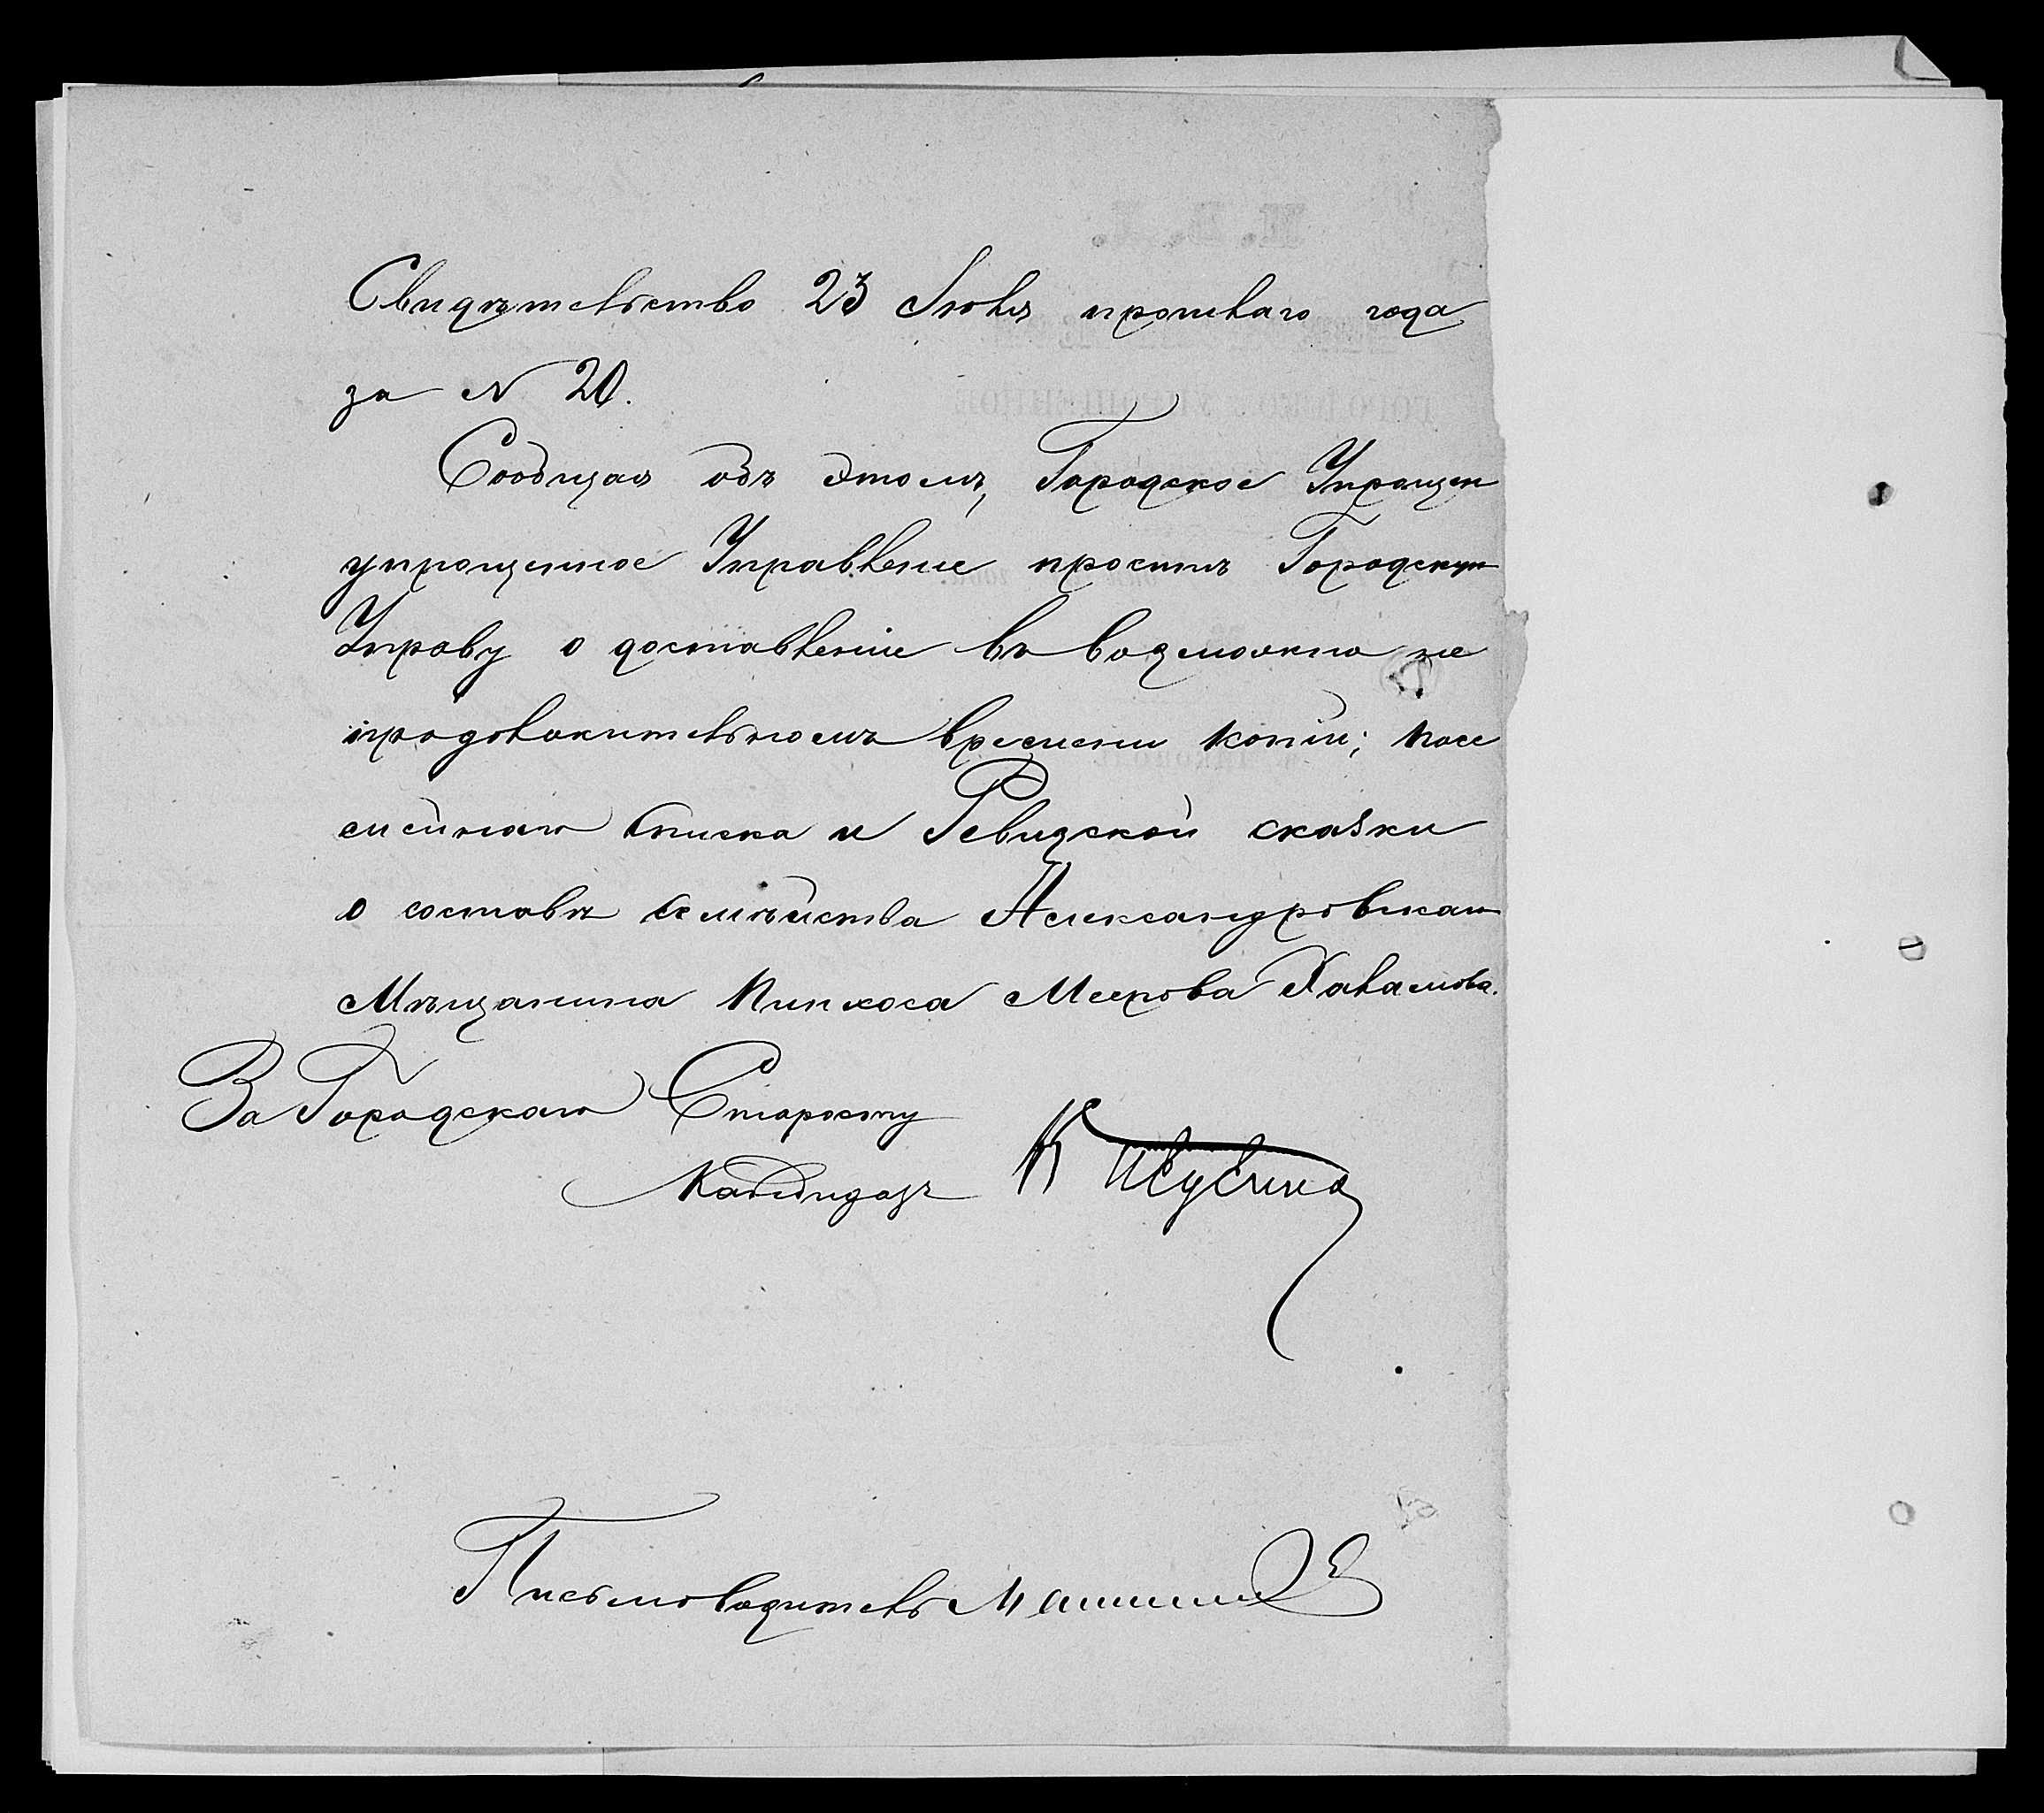 Свидѣтельство 23 Іюля прошлаго года
за N 20.
Сообщая объ этомъ, Городское Упрощен
упрощенное Управленіе проситъ Городскую
Управу о доставленіе въ возможно не
продолжительномъ времени копіи; посе
мейнаго списка и Ревизской сказки
о составѣ семѣйства Александровскаго
Мѣщанина Пинхоса Меерова Халамова.
За Городскаго Старосту
Кандидатъ К
Письмоводитель